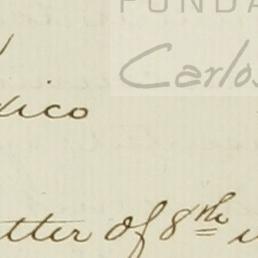 FUNDA
Carlos
xico
tter of 8th i